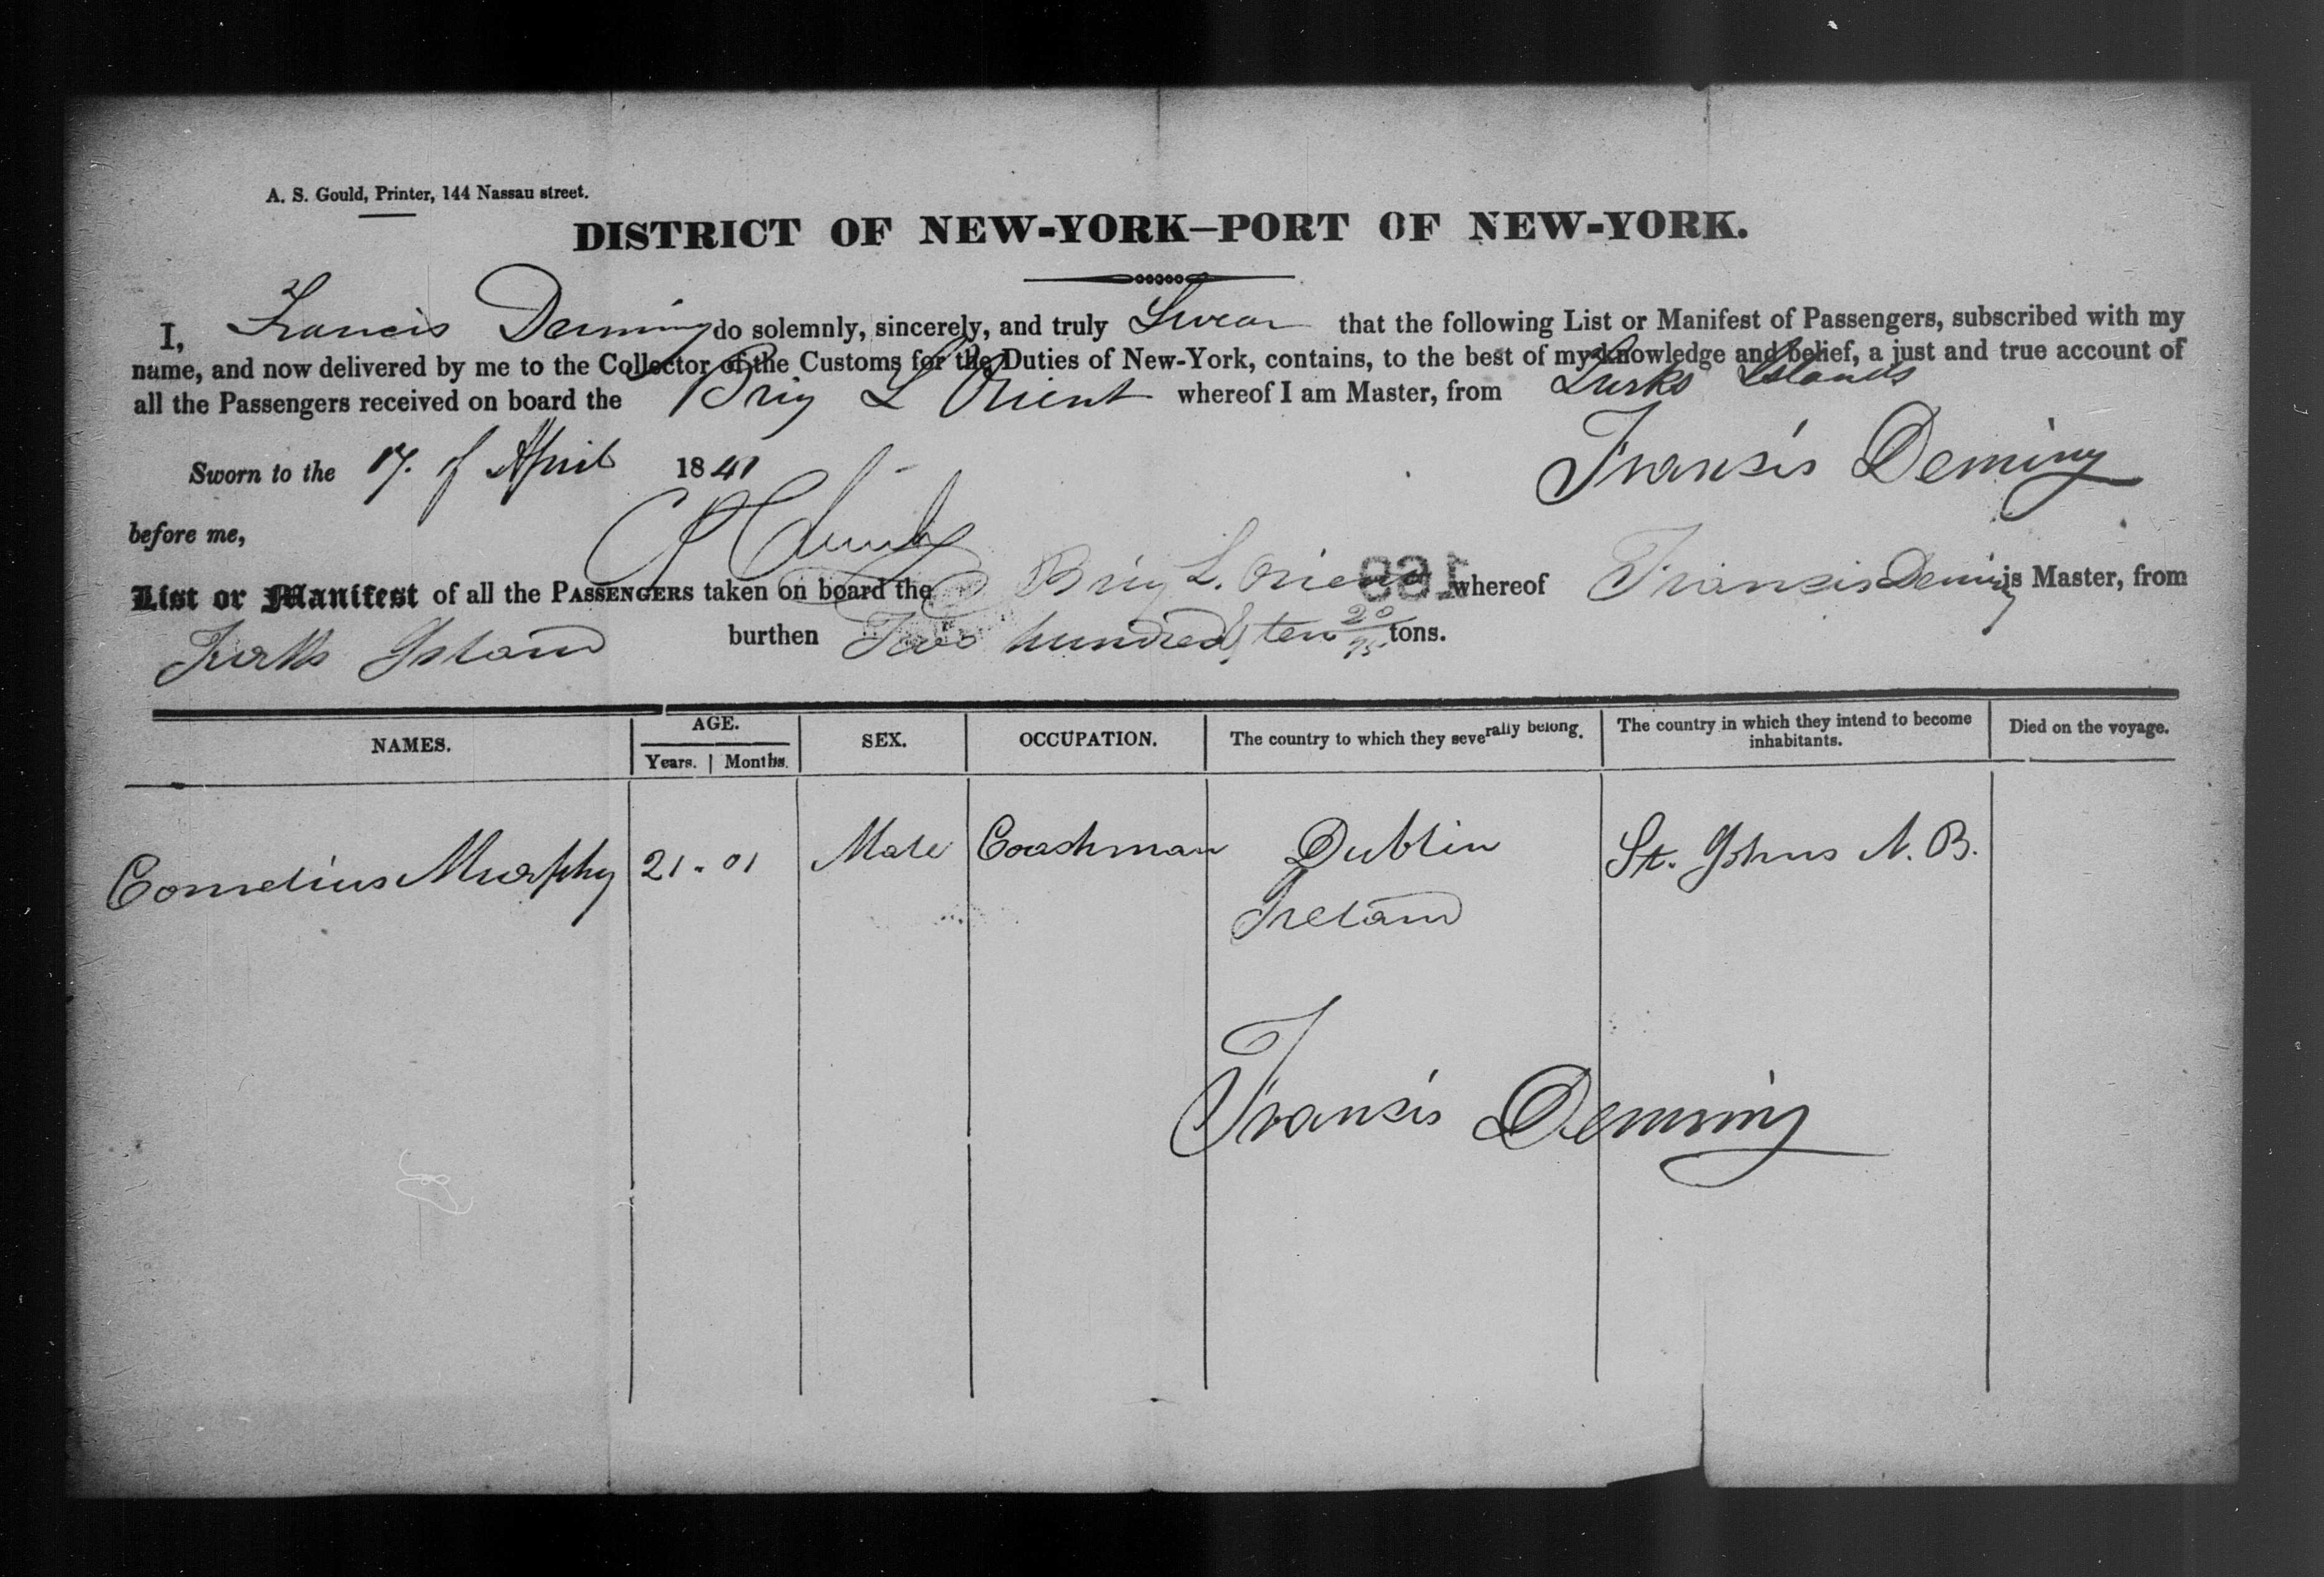 A. S. Gould, Printer, 144 Nassau street.
DISTRICT OF NEW-YORK—PORT OF NEW-YORK.
I, Francis Deming do solemnly, sincerely, and truly Swear that the following List or Manifest of Passengers, subscribed with my
name, and now delivered by me to the Collector of the Customs for the Duties of New-York, contains, to the best of my knowledge and belief, a just and true account of
all the Passengers received on board the Brig L Orient whereof I am Master, from Turks Islands
Fransis Deming
Sworn to the 17. of April 1841
before me,
List or Manifest of all the PASSENGERS taken on board the Brig L. Orient whereof Fransis Deming is Master, from
Turks Island burthen Two hundred ten 20/95 tons.
NAMES. AGE. Years. Months. SEX. OCCUPATION. The country to which they severally belong. The country in which they intend to become inhabitants. Died on the voyage.
Cornelius Murphy 21 - 01 Male Coashman Dublin St. Johns N. B.
Ireland
Fransis Deming